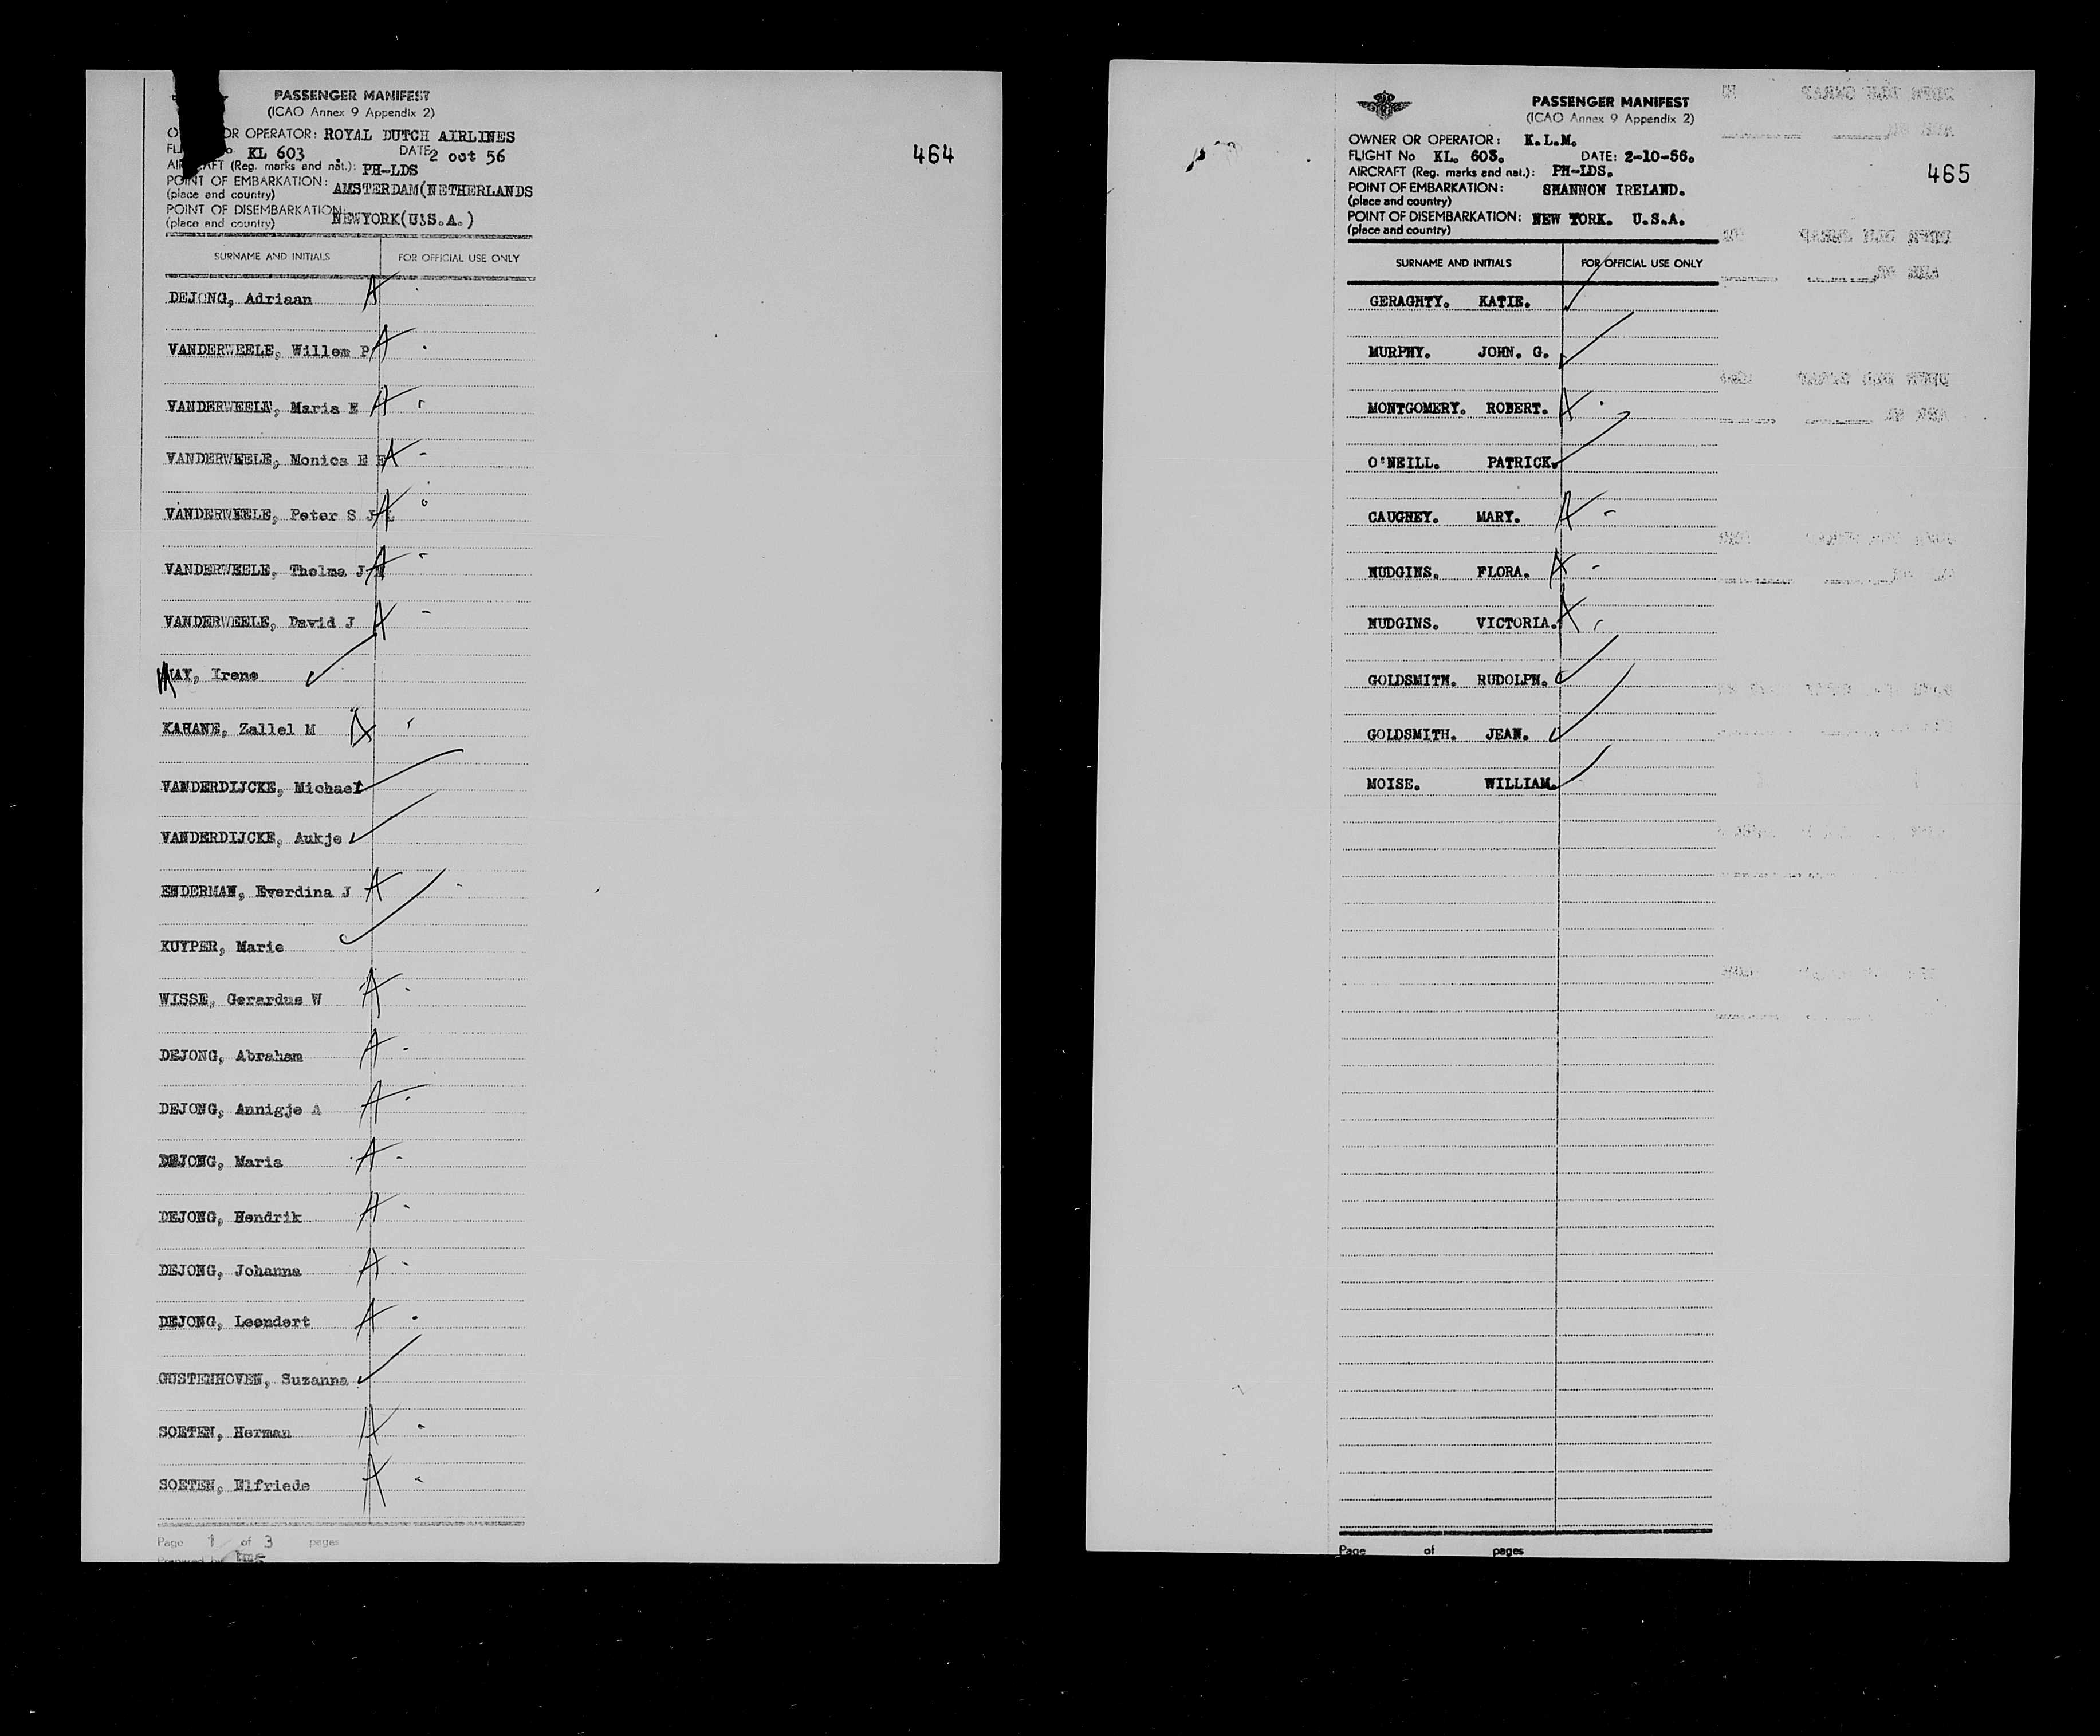 PASSENGER MANIFEST
(ICAO Annex 9 Appendix 2)
OR OPERATOR: ROYAL DUTCH AIRLINES
KL 603 DATE 2 oct 56
(Reg. marks and nat.): PH-LDS
POINT OF EMBARKATION: AMSTERDAM(NETHERLANDS
(place and country)
POINT OF DISEMBARKATION: NEWYORK(U.S.A.)
(place and country)
464
SURNAME AND INITIALS FOR OFFICIAL USE ONLY
DEJONG, Adriaan A
VANDERWEELE, Willem P A
VANDERWEELE, Maria E A
VANDERWEELE, Monica E E A
VANDERWEELE, Peter S J L A
VANDERWEELE, Thelma J A
VANDERWEELE, David J A
MAY, Irene
KAHANE, Zallel M A
VANDERDIJCKE, Michael
VANDERDIJCKE, Aukje
ENDERMAN, Everdina J A
KUYPER, Marie
WISSE, Gerardus W A
DEJONG, Abraham A
DEJONG, Annigje A A
DEJONG, Maria A
DEJONG, Hendrik A
DEJONG, Johanna A
DEJONG, Leendert A
GUSTENHOVEN, Suzanna
SOETEN, Herman A
SOETEN, Elfriede A
Page 1 of 3 pages
Prepared by
PASSENGER MANIFEST
(ICAO Annex 9 Appendix 2)
OWNER OR OPERATOR: K.L.M.
FLIGHT No KL. 603. DATE: 2-10-56.
AIRCRAFT (Reg. marks and nat.): PH-LDS.
POINT OF EMBARKATION: SHANNON IRELAND.
(place and country)
POINT OF DISEMBARKATION: NEW YORK. U.S.A.
(place and country)
465
SURNAME AND INITIALS FOR OFFICIAL USE ONLY
GERAGHTY. KATIE.
MURPHY. JOHN. G.
MONTGOMERY. ROBERT. A
O'NEILL. PATRICK.
CAUGHEY. MARY. A
HUDGINS. FLORA. A
HUDGINS. VICTORIA. A
GOLDSMITH. RUDOLPH.
GOLDSMITH. JEAN.
MOISE. WILLIAM.
Page of pages